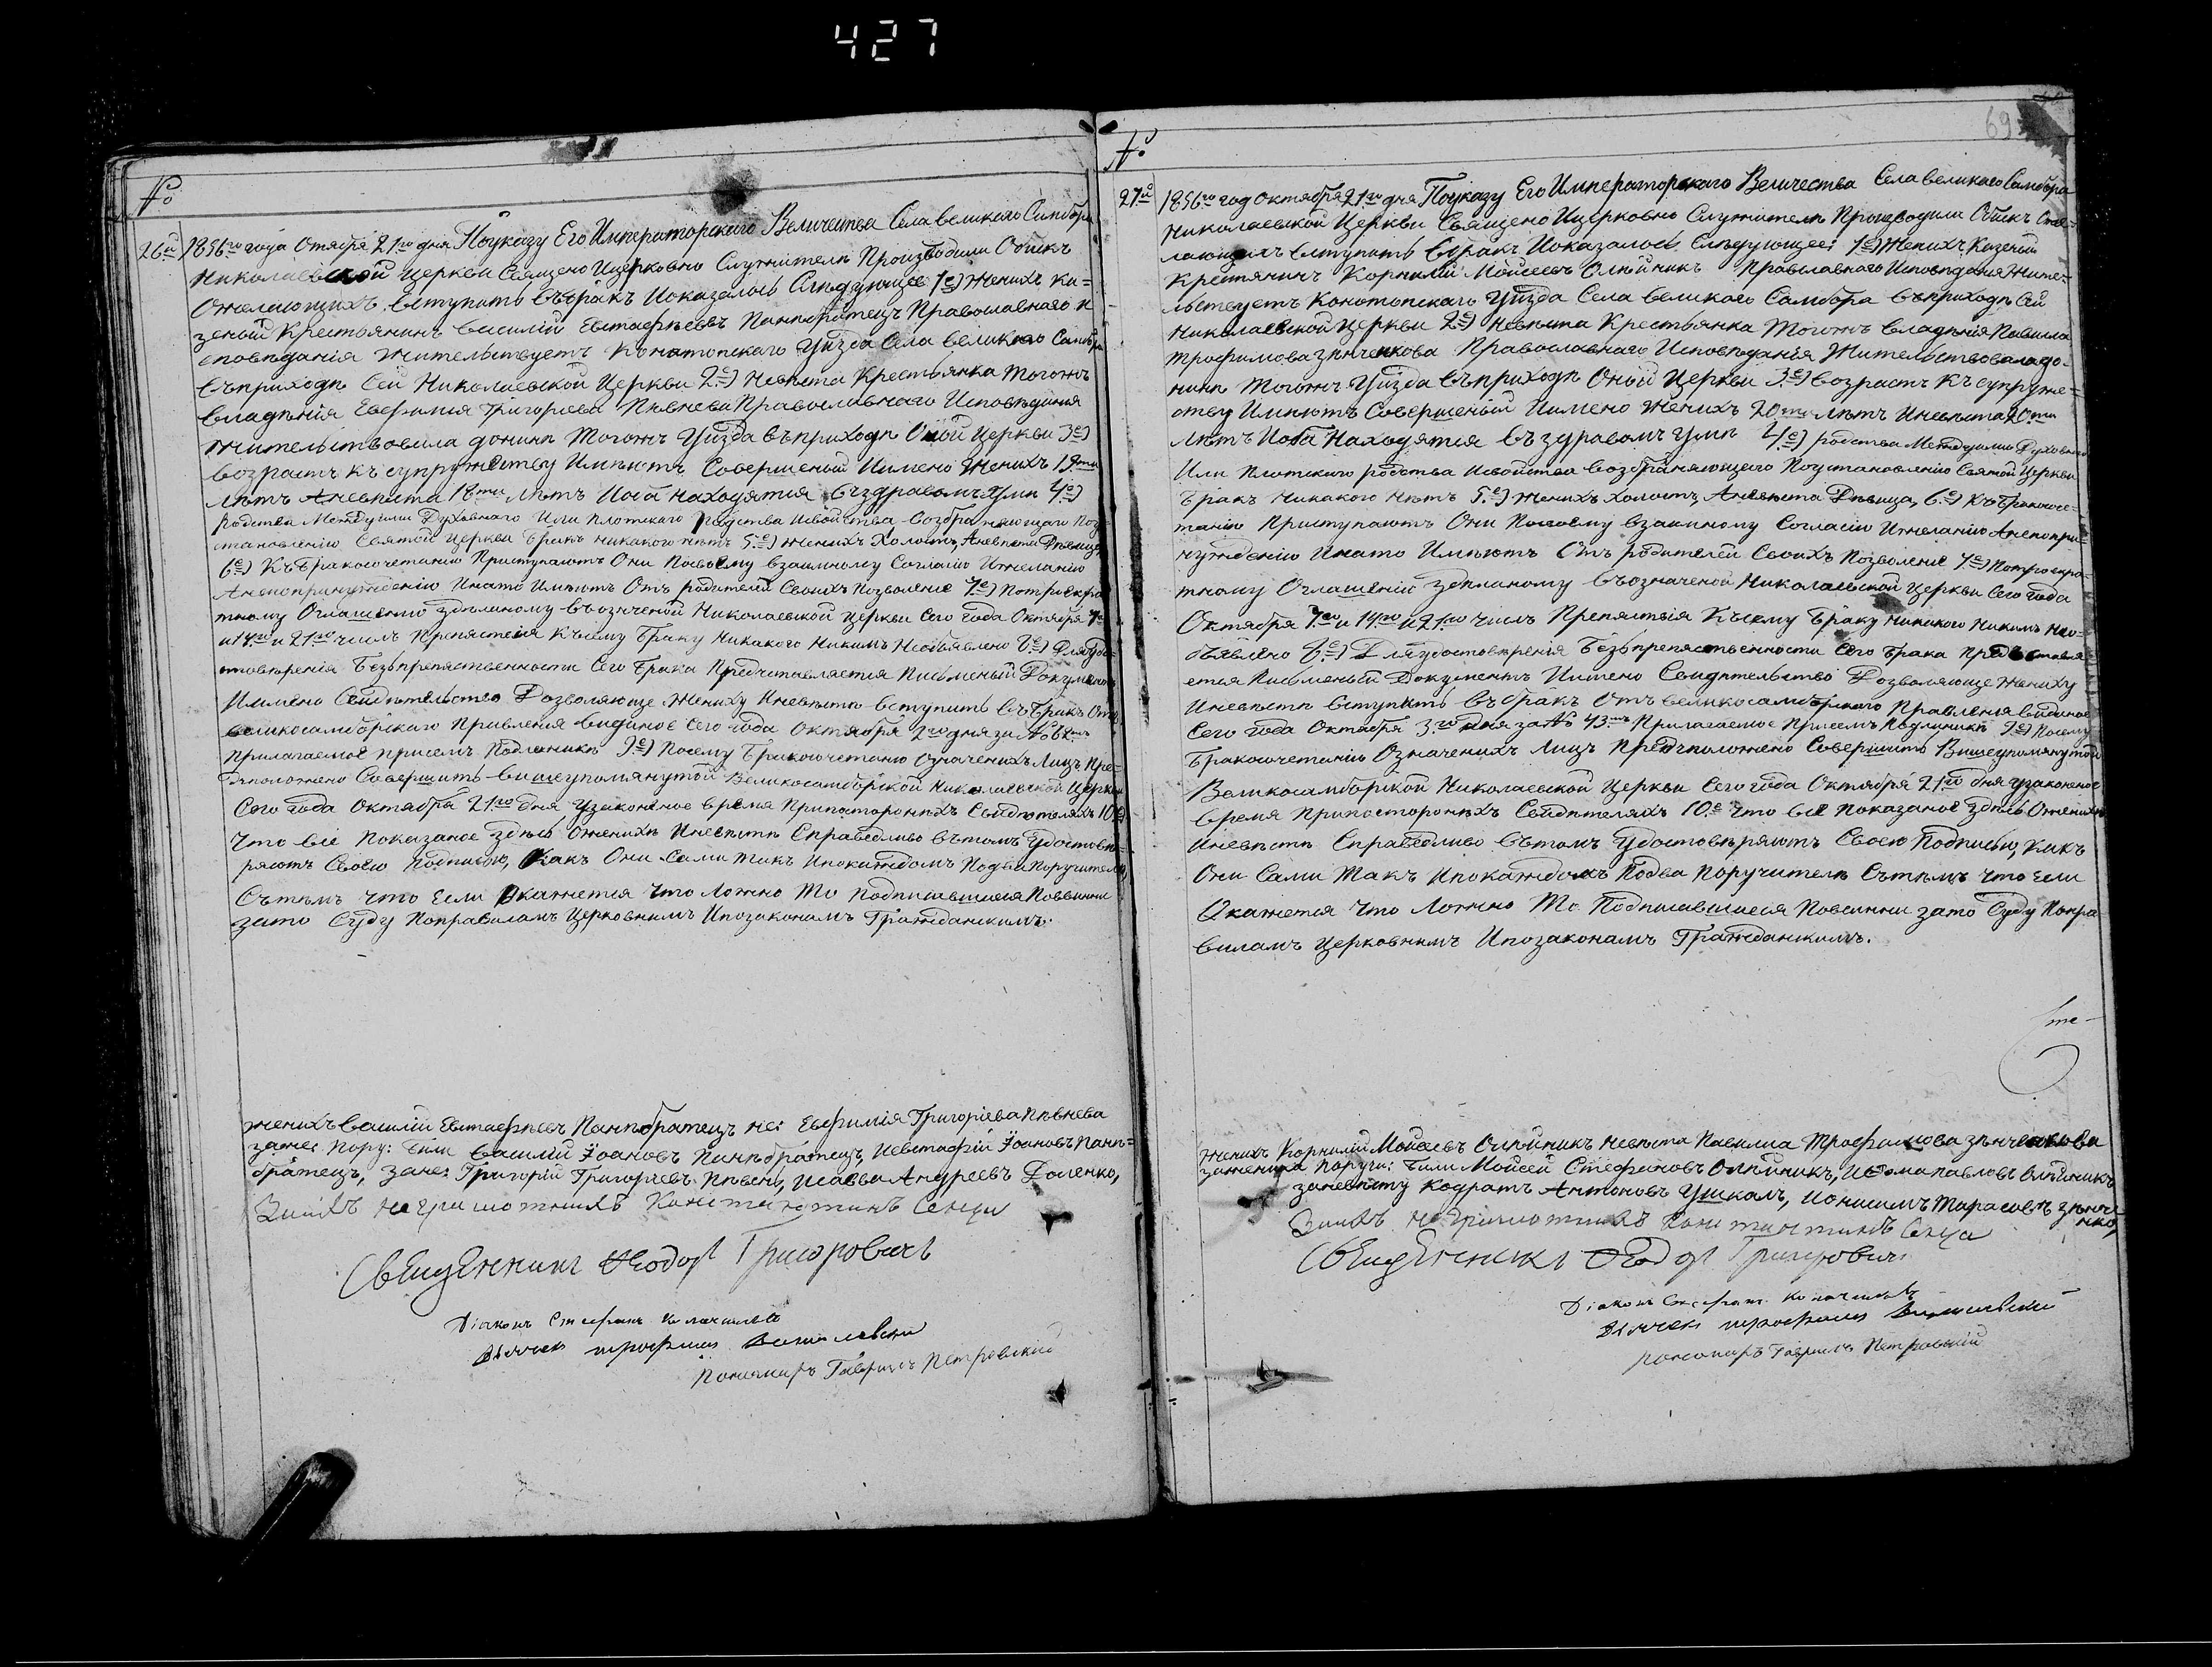 427
№
26й 1856го года Отября 21го дня Поуказу Его Императорскаго Величества Села великого Самбора
Николаевской Церкви Священо Ицерковно Служители Производили Обыск
Ожелающихъ вступить въбракъ Иоказалось Следующее 1е) Женихъ Ка-
зеный Крестьянинъ Василий Евстафьевъ Панибратецъ Православнаго и
споведания жительствуетъ Конотопскаго Уизда Села великого Самбора
Въприходе Сей Николаевской Церкви 2е) Невеста Крестьянка Тогожъ
Владения Евфимия Григориева Певнева Православнаго Исповедания
Жительствовала доныне Тогожъ Уизда въприходе Оной Церкви 3е)
возрастъ къ супружеству Имеютъ Совершеный Иимено Женихъ 19ти
летъ Аневеста 18ти летъ Иоба находятся въздравомъ Уме 4е)
родства Междуими Духовнаго Или плотскаго родства Исвойства возбраняющаго Поу
становлению Святой Церкви бракъ никакого нетъ 5е) Женихъ Холостъ, Аневеста Девица
6е) Къбракосочетанию Приступаютъ Они Посвоему взаимному Согласию Ижеланию
Анепопринуждению Инато Имеютъ Отъ родителей Своихъ Позволение 7е) Потроекра
тному Оглашению зделиному въозначеной Николаевской Церкви Сего Года Октября 7го
и 14го и 21го числъ Препятствия Къцему браку никакого Никимъ Необявлено 8е) Дляудо-
стоверения безъпрепятственности Сего брака Предъставляется Писменый Документъ
Иимено Свидетельство Дозволяюще Жениху Иневесте вступить въбракъ Отъ
великосамборскаго Правления выданое Сего года Октября 2го дня за №
Прилагаемое присемъ Подлинники 9е) Посему Бракосочетанию Означеныхъ Лицъ Пре-
дположено Совершить вышеупомянутой Великосамборской Николаевской Церкви
Сего года Октября 21го дня Узаконеное время Припостороннихъ Свидетеляхъ 10е
Что все Показаное здесь Оженихе Иневесте Справедливо вътомъ Удостове-
ряютъ Своею Подписью, Какъ Они Сами такъ Ипокаждомъ Подва Поручителя
Сътемъ что Если Окажется что Ложно То Подписавшиеся Повинни
зато Суду Поправиламъ Церковнимъ Ипозаконамъ Гражданскимъ.
женихъ Василий Евстафьевъ Панибратецъ не: Евфимия Григориева Певнева
зажe: Пору: били Василий Иоановъ Панибратецъ, Иевстафий Иоановъ Пани-
братецъ, зане: Григорий Григориевъ Певень, Исавва Андреевъ Доленко,
Заныхъ Неграмотныхъ Констатнтинъ Сенца
Священникъ Феодоръ Григоровичъ
Диаконъ Стефанъ
Дьячек Трофимъ Василевский
Пономаръ Гавриилъ Петровский
№ 69
27й 1856го год Октября 21го дня Поуказу Его Императорскаго Величества Села великого Самбора
Николаевской Церкви Священо Ицерковно Служители Производили Обыск Оже-
лающихъ вступить въбракъ Иоказалось Следующее: 1е) Женихъ Казений
Крестянинъ Корнилий Мойсеевъ Олейникъ Православнаго Исповедания Жите-
льствуетъ Конотопскаго Уизда Села великого Самбора въприходе Сей
Николаевской Церкви 2е) Невеста Крестьянка Тогожъ Владения Павила
Трофимова Зенченкова Православнаго Исповедания Жительствовала до-
ныне Тогожъ Уизда въприходе Оной Церкви 3е) возрастъ къ супруже-
ству Имеютъ Совершеный Иимено Женихъ 20ти летъ Иневеста 20ти
летъ Иоба Находятся въ здравомъ Уме 4е) родства Междуими Духовнаго
Или Плотского родства Исвойства возбраняющего Поустановлению Святой Церкви
бракъ никакого нетъ 5е) Женихъ холостъ, Аневеста Девица, 6е) Къбракосоче-
танию Приступаютъ Они Посвоему взаимному Согласию Ижеланию Анепопри-
нуждению Инато Имеютъ Отъ родителей Своихъ Позволение 7е) Потроекра-
тному Оглашению зделиному въозначеной Николаевской Церкви Сего Года
Октября 7го и 14го и 21го числъ Препятствия Къцему браку никакого Никимъ Нео-
бъявлено 8е) Дляудостоверения безъпрепятственности Сего брака Предъставля
ется Писменый Документъ Иимено Свидетельство Дозволяюще Жениху
Иневесте вступить въбракъ Отъ великосамборского Правления выданое
Сего года Октября 3го дня за № 43 Прилагаемое Присемъ Подлинники 9е) Посему
Бракосочетанию Означеныхъ Лицъ Предположено Совершить Вышеупомянутой
Великосамборской Николаевской Церкви Сего года Октября 21го дня Узаконеное
время Припостороннихъ Свидетеляхъ 10е Что все Показаное здесь Оженихе
Иневесте Справедливо вътомъ Удостоверяютъ Своею Подписью, Какъ
Они Сами Такъ Ипокаждомъ Подва Поручителя Сътемъ что Если
Окажется что Ложно То Подписавшиеся Повинни зато Суду Попра
виламъ Церковнимъ Ипозаконамъ Гражданскимъ.
Женихъ Корнилий Мойсеевъ Олейникъ Невеста Павила Трофимова Зенченкова
зажениха Поручи: били Мойсей Стефановъ Олейникъ, Ифома Павловъ Олейникъ
заневесту Кодратъ Антоновъ Ушкалъ, Ионисимъ Тарасовъ Зенче
нко,
Заныхъ Неграмотныхъ Констатнтинъ Сенца
Священникъ Феодоръ Григоровичъ
Диаконъ Стефанъ
Дьячек Трофимъ Василевский
Пономаръ Гавриилъ Петровский